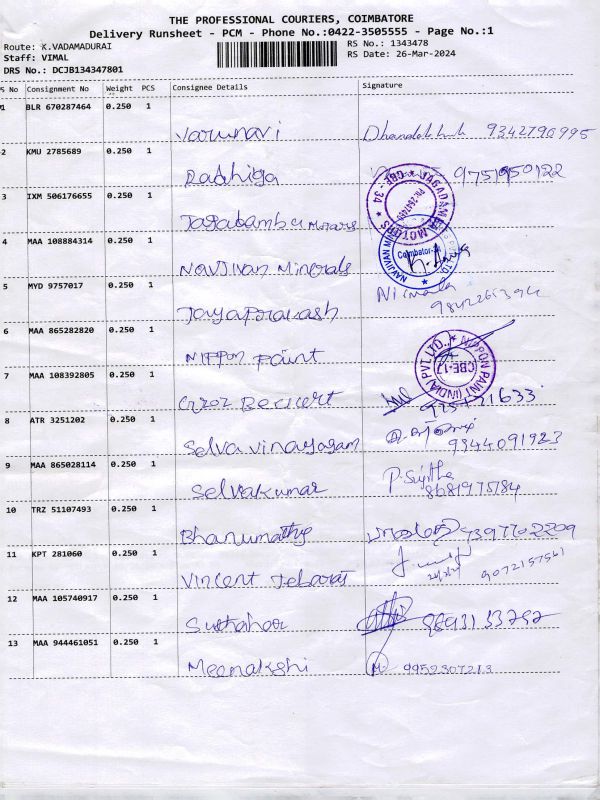 THE PROFESSIONAL COURIERS, COIMBATORE
Delivery Runsheet - PCM - Phone No.:0422-3505555 - Page No.:1
Route: K.VADAMADURAI
RS No.: 1343478
Staff: VIMAL
RS Date: 26-Mar-2024
DRS No.: DCJB134347801
S No Consignment No Weight PCS Consignee Details Signature
1 BLR 670287464 0.250 1
Varunavi 9342790995
2 KMU 2785689 0.250 1
Radhiga 9751950122
3 IXM 506176655 0.250 1
Jagadamba Motors
JAGADAMBA MOTORS CBE - 34
4 MAA 108884314 0.250 1
Navjivan Minerals
Coimbatore
5 MYD 9757017 0.250 1
Jayaprakash Nirmala
6 MAA 865282820 0.250 1
Nippon Paint
NIPPON PAINT (INDIA) PVT. LTD. CBE-17
7 MAA 108392805 0.250 1
8 ATR 3251202 0.250 1
Selva vinayagam 9344091923
9 MAA 865028114 0.250 1
Selvakumar
8681975784
10 TRZ 51107493 0.250 1
Bhanumathy 9397702209
11 KPT 281060 0.250 1
Vincent 9072157561
12 MAA 105740917 0.250 1
13 MAA 944461051 0.250 1
Meenakshi 9952307213